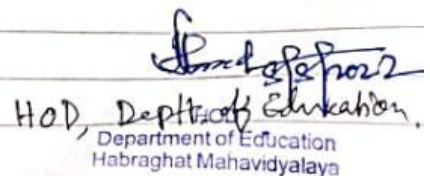 HOD, Deptt. of Education.
HOD
Department of Education
Habraghat Mahavidyalaya